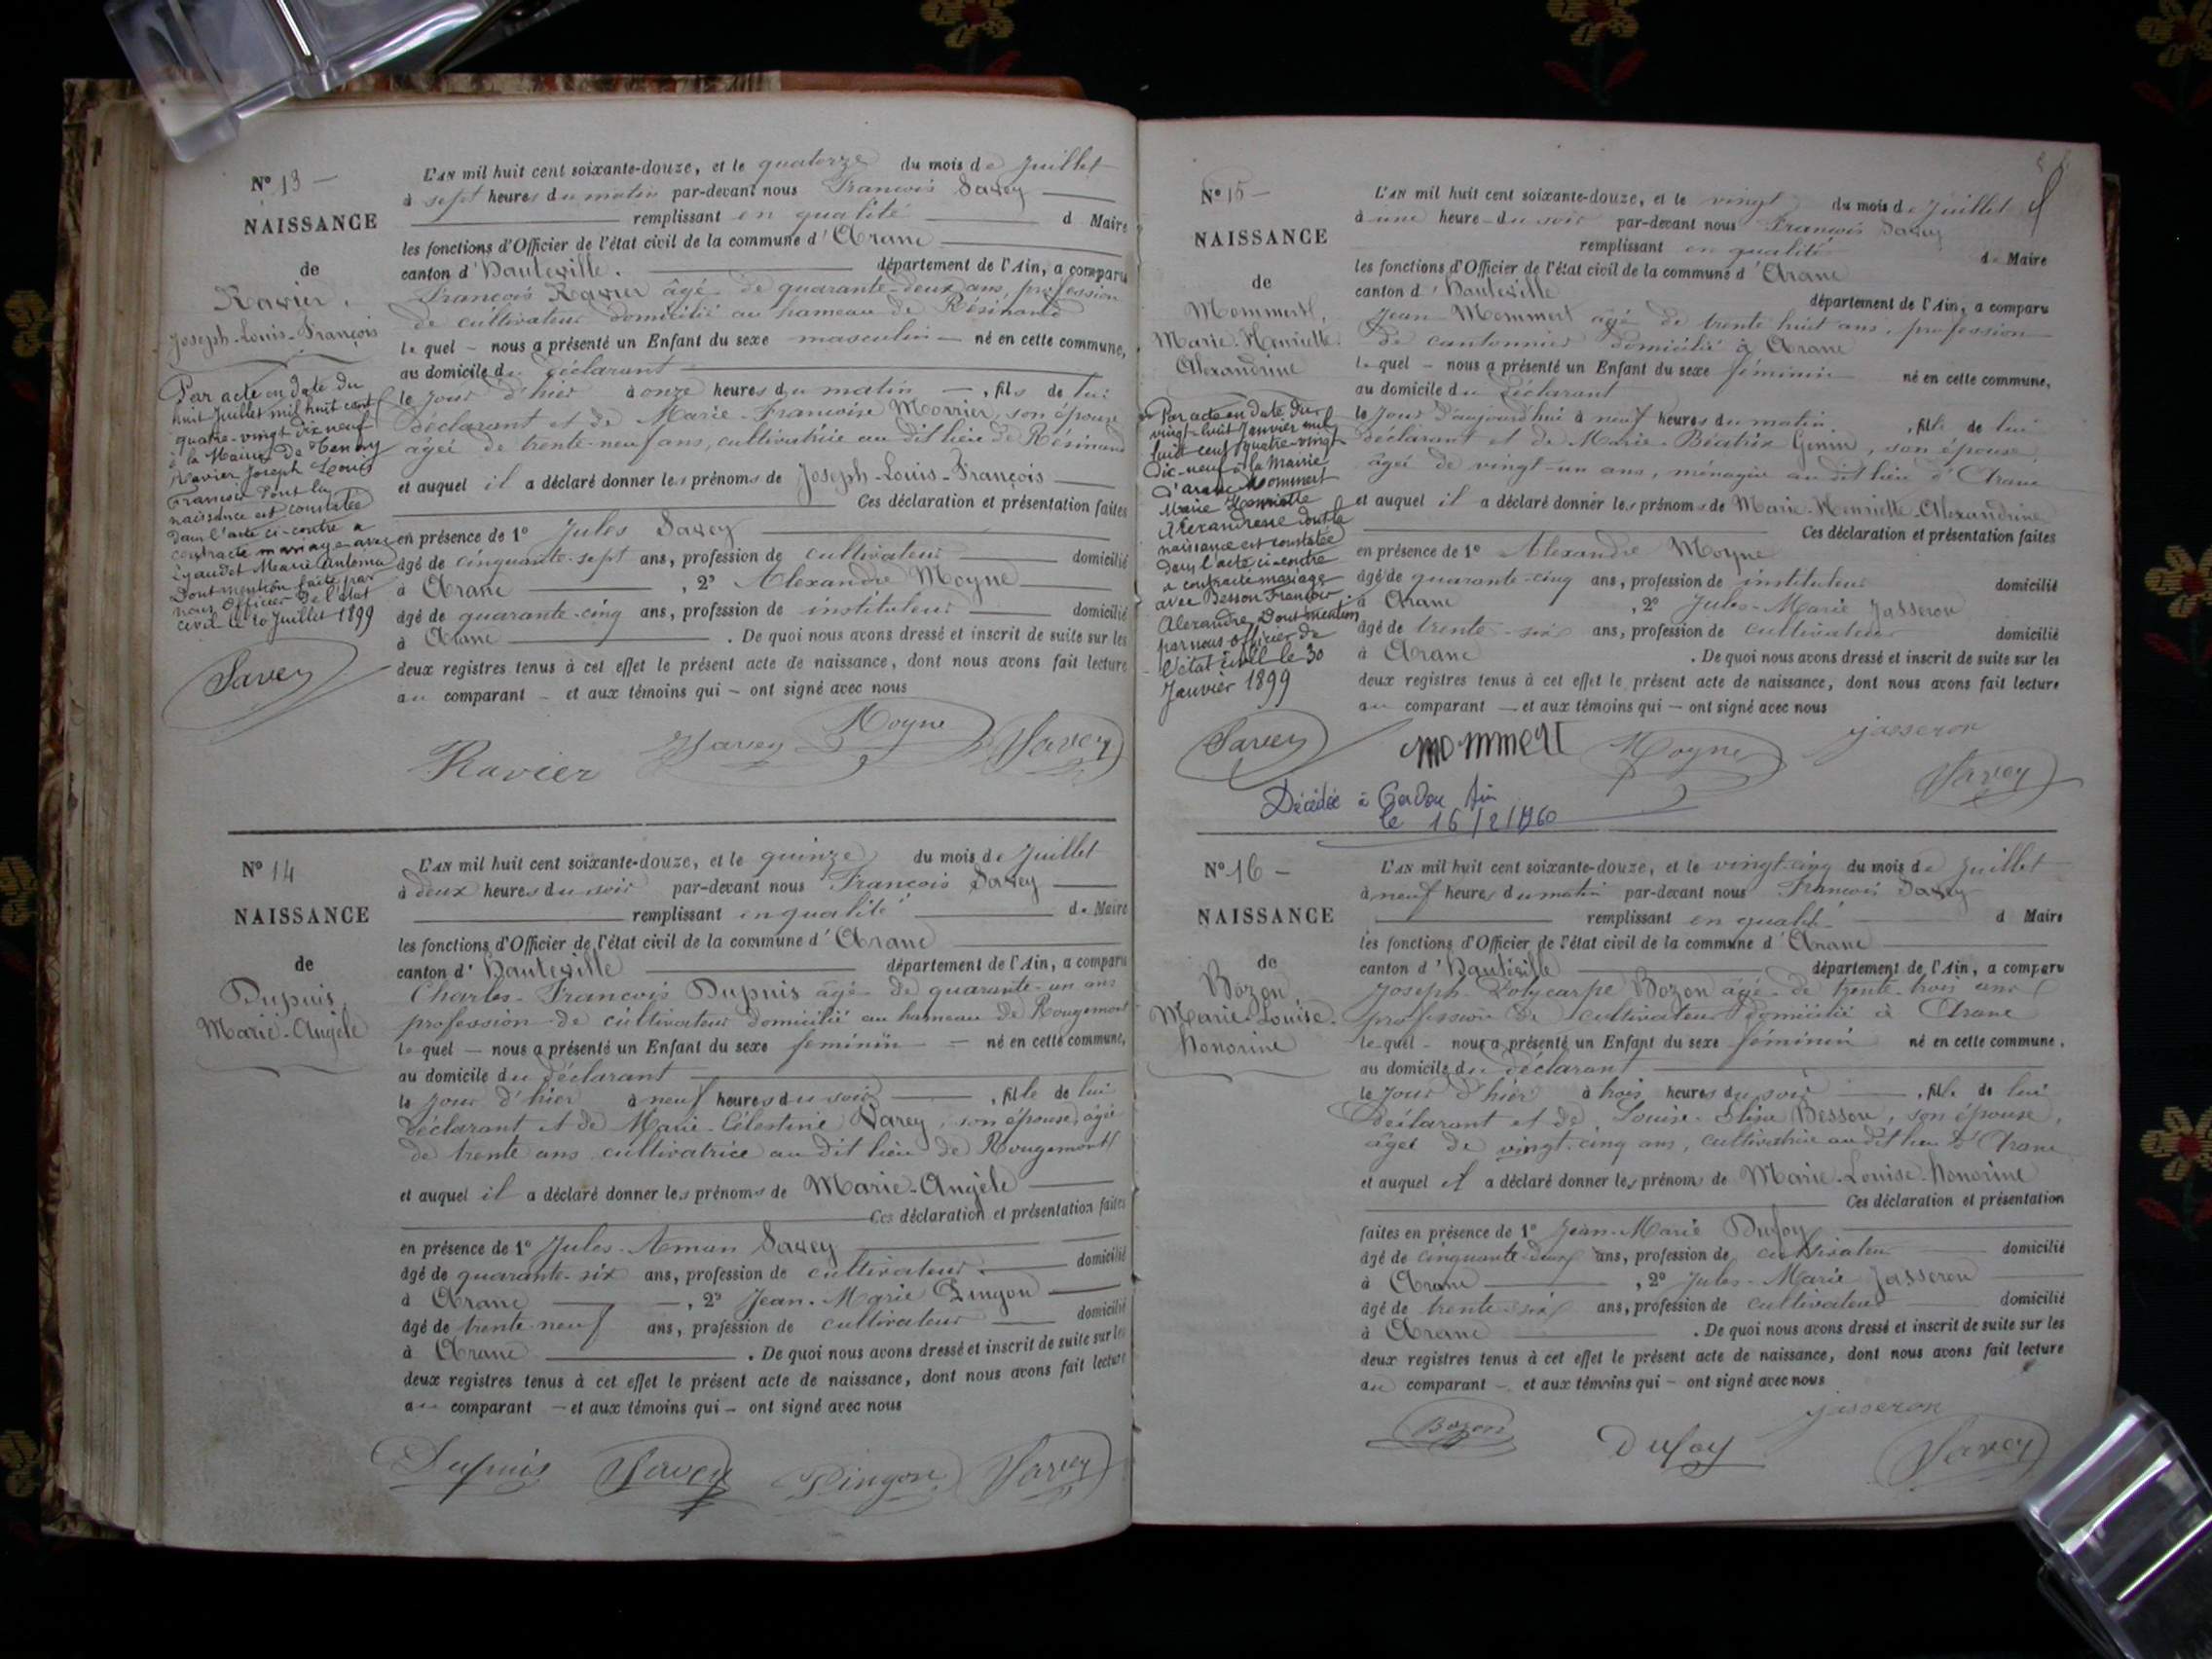 N° 13
NAISSANCE
de
Ravier,
Joseph-Louis-François
Par acte en date du
huit Juillet mil huit cent
quatre-vingt dix neuf
à la Mairie de Tenay
Ravier Joseph Louis
François dont la
naissance est constatée
dans l'acte ci-contre a
contracté mariage avec
Lyaudet Marie Antonia
Dont mention faite par
nous Officier de l'état
civil le 10 Juillet 1899
Savey
L'AN mil huit cent soixante-douze, et le quatorze du mois de Juillet
à sept heures du matin par-devant nous François Savey
remplissant en qualité d Maire
les fonctions d'Officier de l'état civil de la commune d'Aranc
canton d'Hauteville. département de l'Ain, a comparu
François Ravier âgé de quarante-deux ans, profession
de cultivateur domicilié au hameau de Résinand
lequel nous a présenté un Enfant du sexe masculin né en cette commune,
au domicile du déclarant
le jour d'hier à onze heures du matin, fils de lui
déclarant et de Marie-Françoise Morrier, son épouse
âgée de trente-neuf ans, cultivatrice au dit lieu de Résinand
et auquel il a déclaré donner les prénoms de Joseph-Louis-François
Ces déclaration et présentation faites
en présence de 1° Jules Savey
âgé de cinquante-sept ans, profession de cultivateur domicilié
à Aranc, 2° Alexandre Moyne
âgé de quarante-cinq ans, profession de instituteur domicilié
à Aranc. De quoi nous avons dressé et inscrit de suite sur les
deux registres tenus à cet effet le présent acte de naissance, dont nous avons fait lecture
au comparant et aux témoins qui ont signé avec nous
Ravier JSavey Moyne Savey
N° 14
NAISSANCE
de
Dupuis,
Marie-Angèle
L'AN mil huit cent soixante-douze, et le quinze du mois de Juillet
à deux heures du soir par-devant nous François Savey
remplissant en qualité de Maire
les fonctions d'Officier de l'état civil de la commune d'Aranc
canton d'Hauteville département de l'Ain, a comparu
Charles-François Dupuis âgé de quarante-un ans
profession de cultivateur domicilié au hameau de Rougemont
lequel nous a présenté un Enfant du sexe féminin né en cette commune,
au domicile du déclarant
le jour d'hier à neuf heures du soir, fille de lui
déclarant et de Marie-Célestine Varey, son épouse, âgée
de trente ans cultivatrice au dit lieu de Rougemont
et auquel il a déclaré donner les prénoms de Marie-Angèle
Ces déclaration et présentation faites
en présence de 1° Jules-Aman Savey
âgé de quarante-six ans, profession de cultivateur domicilié
à Aranc, 2° Jean-Marie Pingon
âgé de trente-neuf ans, profession de cultivateur domicilié
à Aranc. De quoi nous avons dressé et inscrit de suite sur les
deux registres tenus à cet effet le présent acte de naissance, dont nous avons fait lecture
au comparant et aux témoins qui ont signé avec nous
Dupuis Savey Pingon Savey
N° 15
NAISSANCE
de
Mommert,
Marie-Henriette
Alexandrine
Par acte en date du
vingt-huit Janvier mil
huit cent quatre-vingt
dix-neuf à la Mairie
d'Aranc Mommert
Marie Henriette
Alexandrine dont la
naissance est constatée
dans l'acte ci-contre
a contracté mariage
avec Besson François
Alexandre, Dont mention
par nous officier de
l'état civil le 30
Janvier 1899
Savey
L'AN mil huit cent soixante-douze, et le vingt du mois de Juillet
à une heure du soir par-devant nous François Savey
remplissant en qualité de Maire
les fonctions d'Officier de l'état civil de la commune d'Aranc
canton d'Hauteville département de l'Ain, a comparu
Jean Mommert âgé de trente huit ans, profession
de cantonnier domicilié à Aranc
lequel nous a présenté un Enfant du sexe féminin né en cette commune,
au domicile du déclarant
le jour d'aujourd'hui à neuf heures du matin, fille de lui
déclarant et de Marie-Béatrix Genin, son épouse,
âgée de vingt-un ans, ménagère au dit lieu d'Aranc
et auquel il a déclaré donner les prénoms de Marie-Henriette-Alexandrine
Ces déclaration et présentation faites
en présence de 1° Alexandre Moyne
âgé de quarante-cinq ans, profession de instituteur domicilié
à Aranc, 2° Jules-Marie Jasseron
âgé de trente-six ans, profession de cultivateur domicilié
à Aranc. De quoi nous avons dressé et inscrit de suite sur les
deux registres tenus à cet effet le présent acte de naissance, dont nous avons fait lecture
au comparant et aux témoins qui ont signé avec nous
mommert Moyne jasseron Savey
Décédée à Ain
le 16/2/1960
N° 16
NAISSANCE
de
Bozon
Marie-Louise-
Honorine
L'AN mil huit cent soixante-douze, et le vingt-cinq du mois de Juillet
à neuf heures du matin par-devant nous François Savey
remplissant en qualité d Maire
les fonctions d'Officier de l'état civil de la commune d'Aranc
canton d'Hauteville département de l'Ain, a comparu
Joseph-Polycarpe Bozon âgé de trente-trois ans
profession de cultivateur domicilié à Aranc
lequel nous a présenté un Enfant du sexe féminin né en cette commune,
au domicile du déclarant
le jour d'hier à trois heures du soir, fille de lui
déclarant et de Louise-Elisa Besson, son épouse,
âgée de vingt-cinq ans, cultivatrice au dit lieu d'Aranc
et auquel il a déclaré donner les prénoms de Marie-Louise-Honorine
Ces déclaration et présentation
faites en présence de 1° Jean-Marie Dufoy
âgé de cinquante-deux ans, profession de cultivateur domicilié
à Aranc, 2° Jules-Marie Jasseron
âgé de trente-six ans, profession de cultivateur domicilié
à Aranc. De quoi nous avons dressé et inscrit de suite sur les
deux registres tenus à cet effet le présent acte de naissance, dont nous avons fait lecture
au comparant et aux témoins qui ont signé avec nous
Bozon Dufoy jasseron Savey